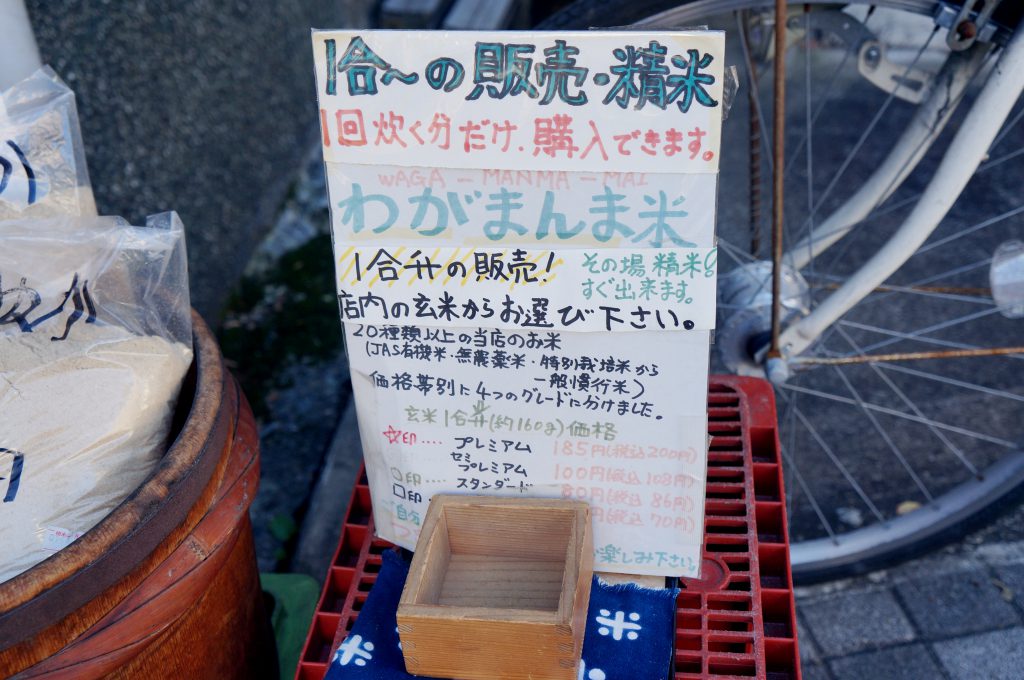 1合〜の販売・精米
1回炊く分だけ、購入できます。
WAGA - MANMA - MAI
わがまんま米
1合升の販売!
その場精米!
すぐ出来ます。
店内の玄米からお選び下さい。
20種類以上の当店のお米
(JAS有機米・無農薬米・特別栽培米から
一般慣行米)
価格帯別に4つのグレードに分けました。
玄米1合升(約160g)価格
☆印‥‥プレミアム 185円(税込200円)
〇印‥‥セミプレミアム 100円(税込108円)
□印‥‥スタンダード 80円(税込86円)
円(税込70円)
自分
楽しみ下さい。